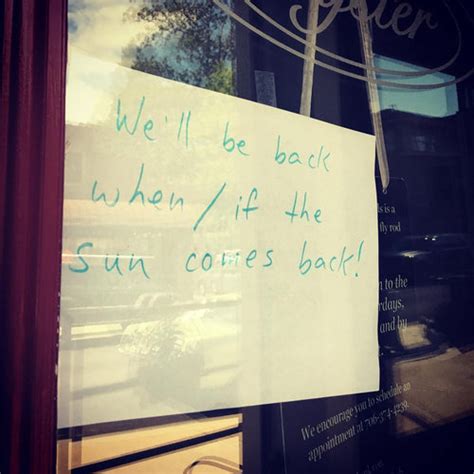 We'll be back
when/if the
sun comes back!
s is a
fly rod
to the
rdays,
and by
We encourage you to schedule an
appointment at 706-374-4239.